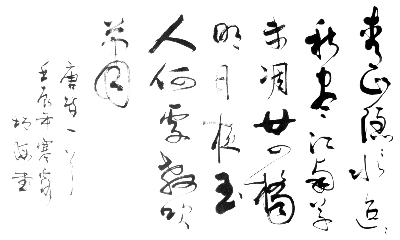 青山隱〻水迢〻
秋盡江南草
未凋廿四橋
明月夜玉
人何處教吹
簫
唐詩一首
壬辰年寒露
書